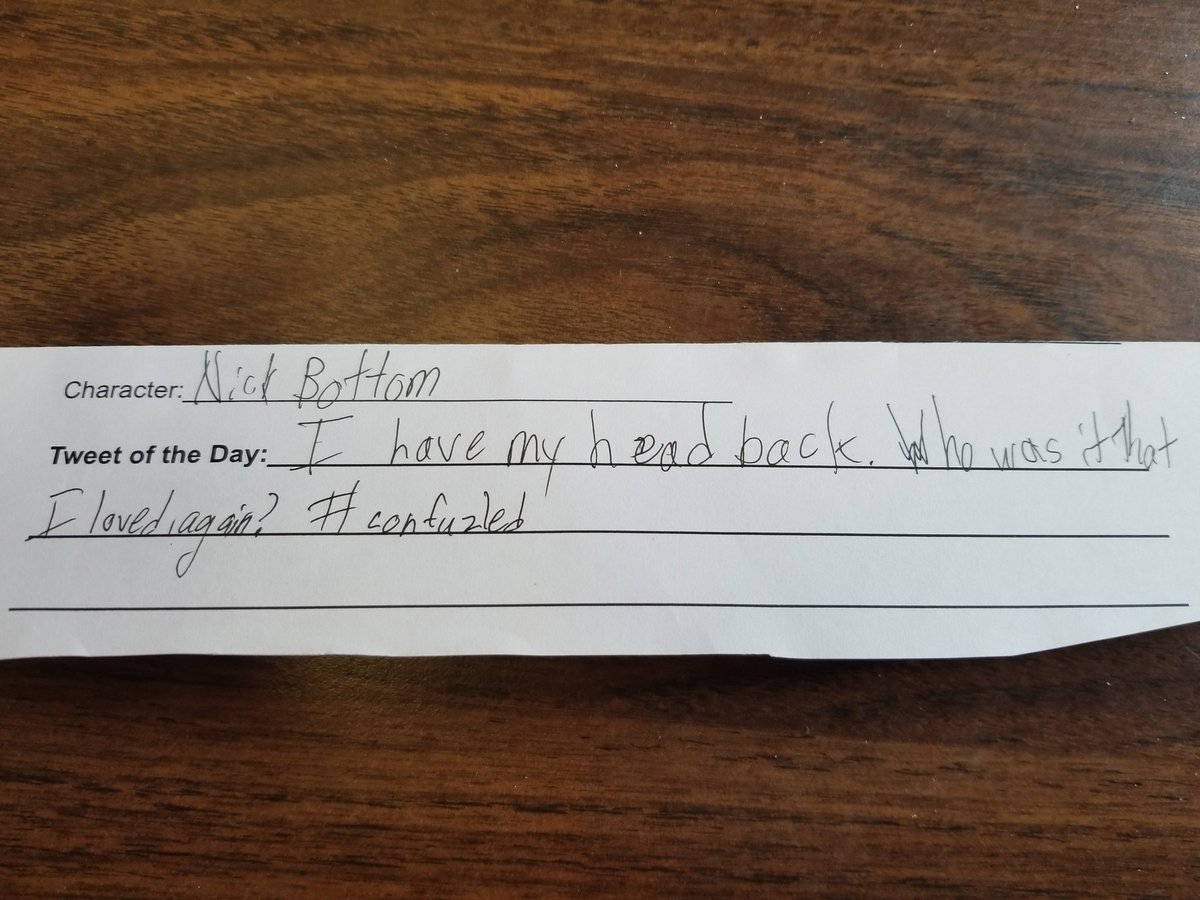 Character: Nick Bottom
Tweet of the Day: I have my head back. Who was it that
I loved, again? #confuzled